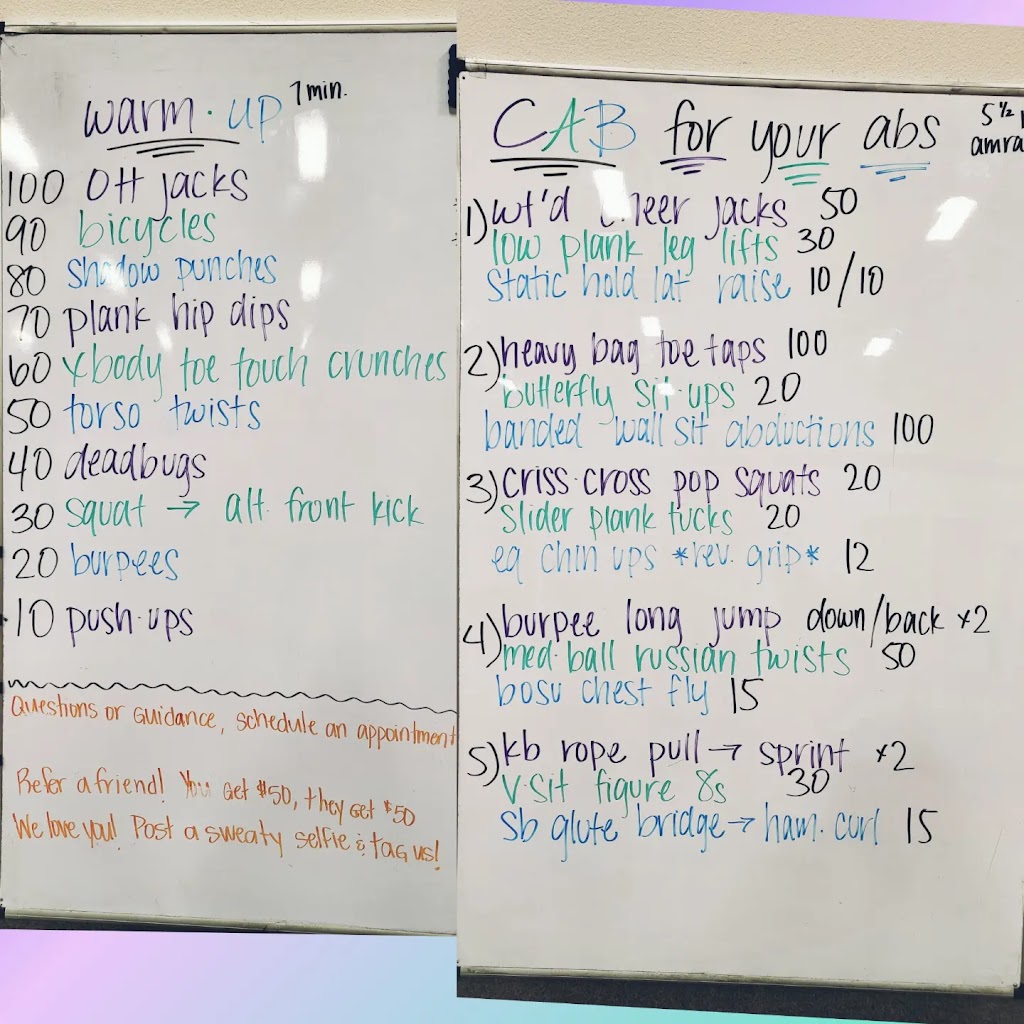 warm·up 7 min.
100 OH jacks
90 bicycles
80 shadow punches
70 plank hip dips
60 xbody toe touch crunches
50 torso twists
40 deadbugs
30 squat → alt. front kick
20 burpees
10 push·ups
Questions or Guidance, schedule an appointment
Refer a friend! You get $50, they get $50
We love you! Post a sweaty selfie & tag us!
CAB for your abs 5 1/2
amra
1) wt'd cheer jacks 50
low plank leg lifts 30
static hold lat raise 10/10
2) heavy bag toe taps 100
butterfly sit-ups 20
banded wall sit abductions 100
3) criss-cross pop squats 20
slider plank tucks 20
eq chin ups *rev. grip* 12
4) burpee long jump down/back x2
med·ball russian twists 50
bosu chest fly 15
5) kb rope pull → sprint x2
v-sit figure 8s 30
sb glute bridge → ham. curl 15